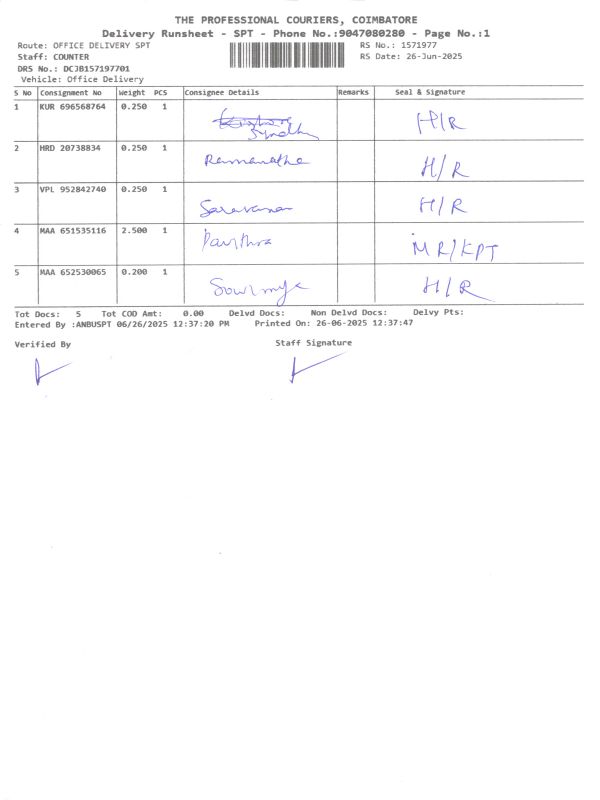 THE PROFESSIONAL COURIERS, COIMBATORE
Delivery Runsheet - SPT - Phone No.:9047080280 - Page No.:1
Route: OFFICE DELIVERY SPT RS No.: 1571977
Staff: COUNTER RS Date: 26-Jun-2025
DRS No.: DCJB157197701
Vehicle: Office Delivery
S No Consignment No Weight PCS Consignee Details Remarks Seal & Signature
1 KUR 696568764 0.250 1 H/R
2 HRD 20738834 0.250 1 Ramanatha H/R
3 VPL 952842740 0.250 1 Saravanan H/R
4 MAA 651535116 2.500 1 Pavithra MR/KPT
5 MAA 652530065 0.200 1 Sowmya H/R
Tot Docs: 5 Tot COD Amt: 0.00 Delvd Docs: Non Delvd Docs: Delvy Pts:
Entered By :ANBUSPT 06/26/2025 12:37:20 PM Printed On: 26-06-2025 12:37:47
Verified By Staff Signature